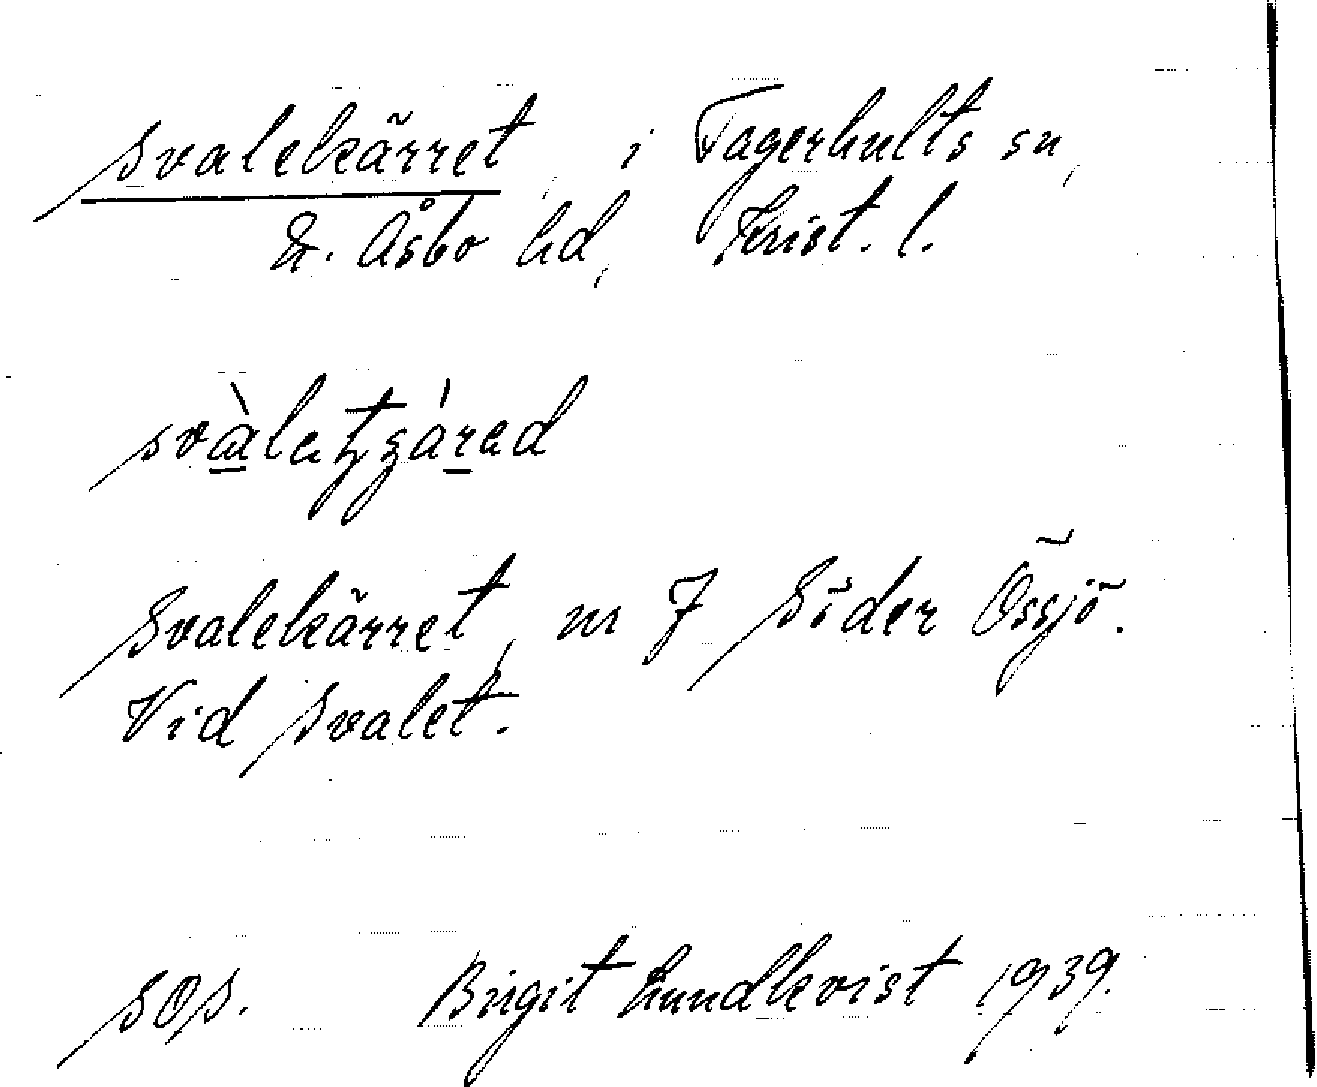 Svalekärret, i Fagerhults sn,
N. Åsbo hd, Krist. l.
Svalekärret, nr 7 Söder Össjö.
Vid Svalet.
SOS. Birgit Lundkvist 1939.